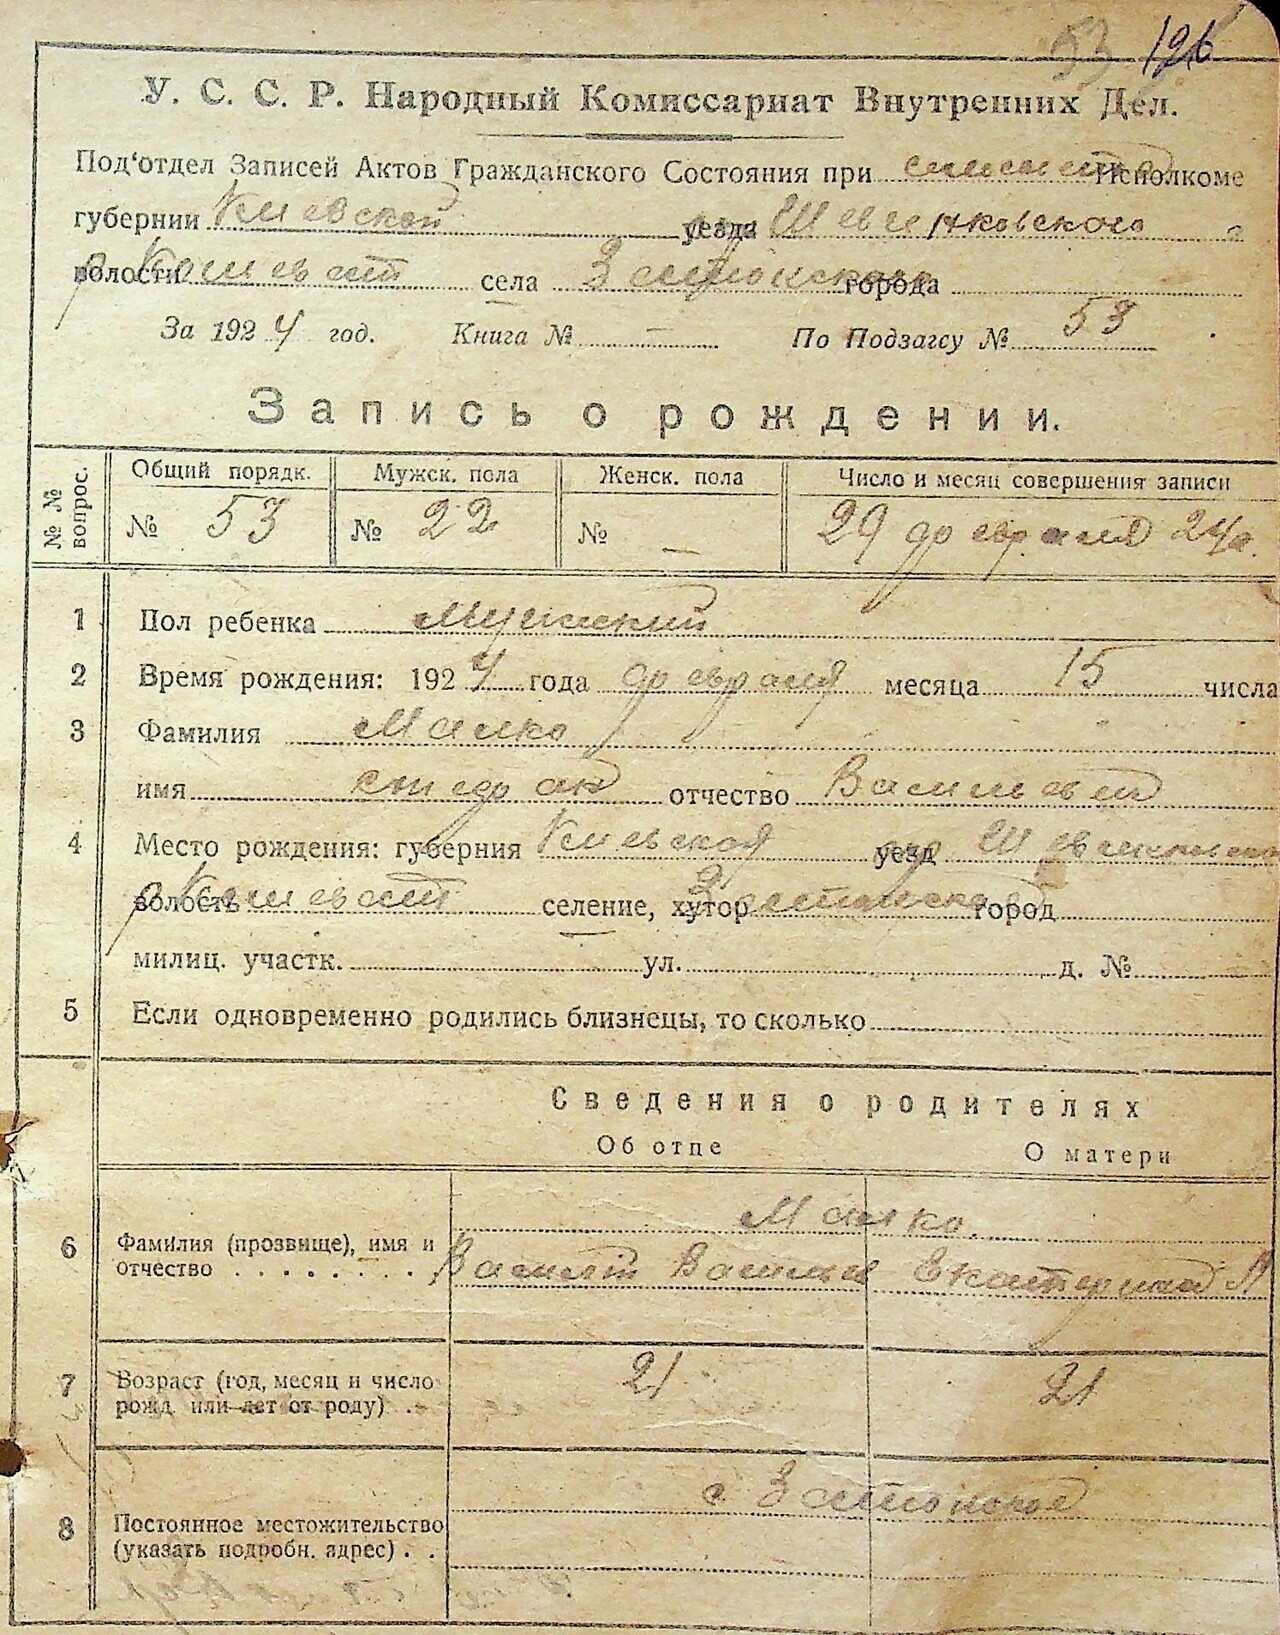 53 126
У. С. С. Р. Народный Комиссариат Внутренних Дел.
Под'отдел Записей Актов Гражданского Состояния при Исполкоме
губернии Киевской уезда Шевченковского
волости села города
За 1924 год. Книга № — По Подзагсу № 53
Запись о рождении.
№ № вопрос. Общий порядк. Мужск. пола Женск. пола Число и месяц совершения записи
№ 53 № 22 № — 29 февраля 24 г.
1 Пол ребенка Мужский
2 Время рождения: 1924 года февраля месяца 15 числа
3 Фамилия Малко
имя Стефан отчество Васильев
4 Место рождения: губерния Киевской уезд
волость селение, хутор город
милиц. участк. ул. д. №
5 Если одновременно родились близнецы, то сколько
Сведения о родителях
Об отце О матери
Малко
6 Фамилия (прозвище), имя и
отчество . . . . . . . . Василий Васильев Екатерина
7 Возраст (год, месяц и число 21 21
рожд. или лет от роду) . .
с
8 Постоянное местожительство
(указать подробн. адрес) . .